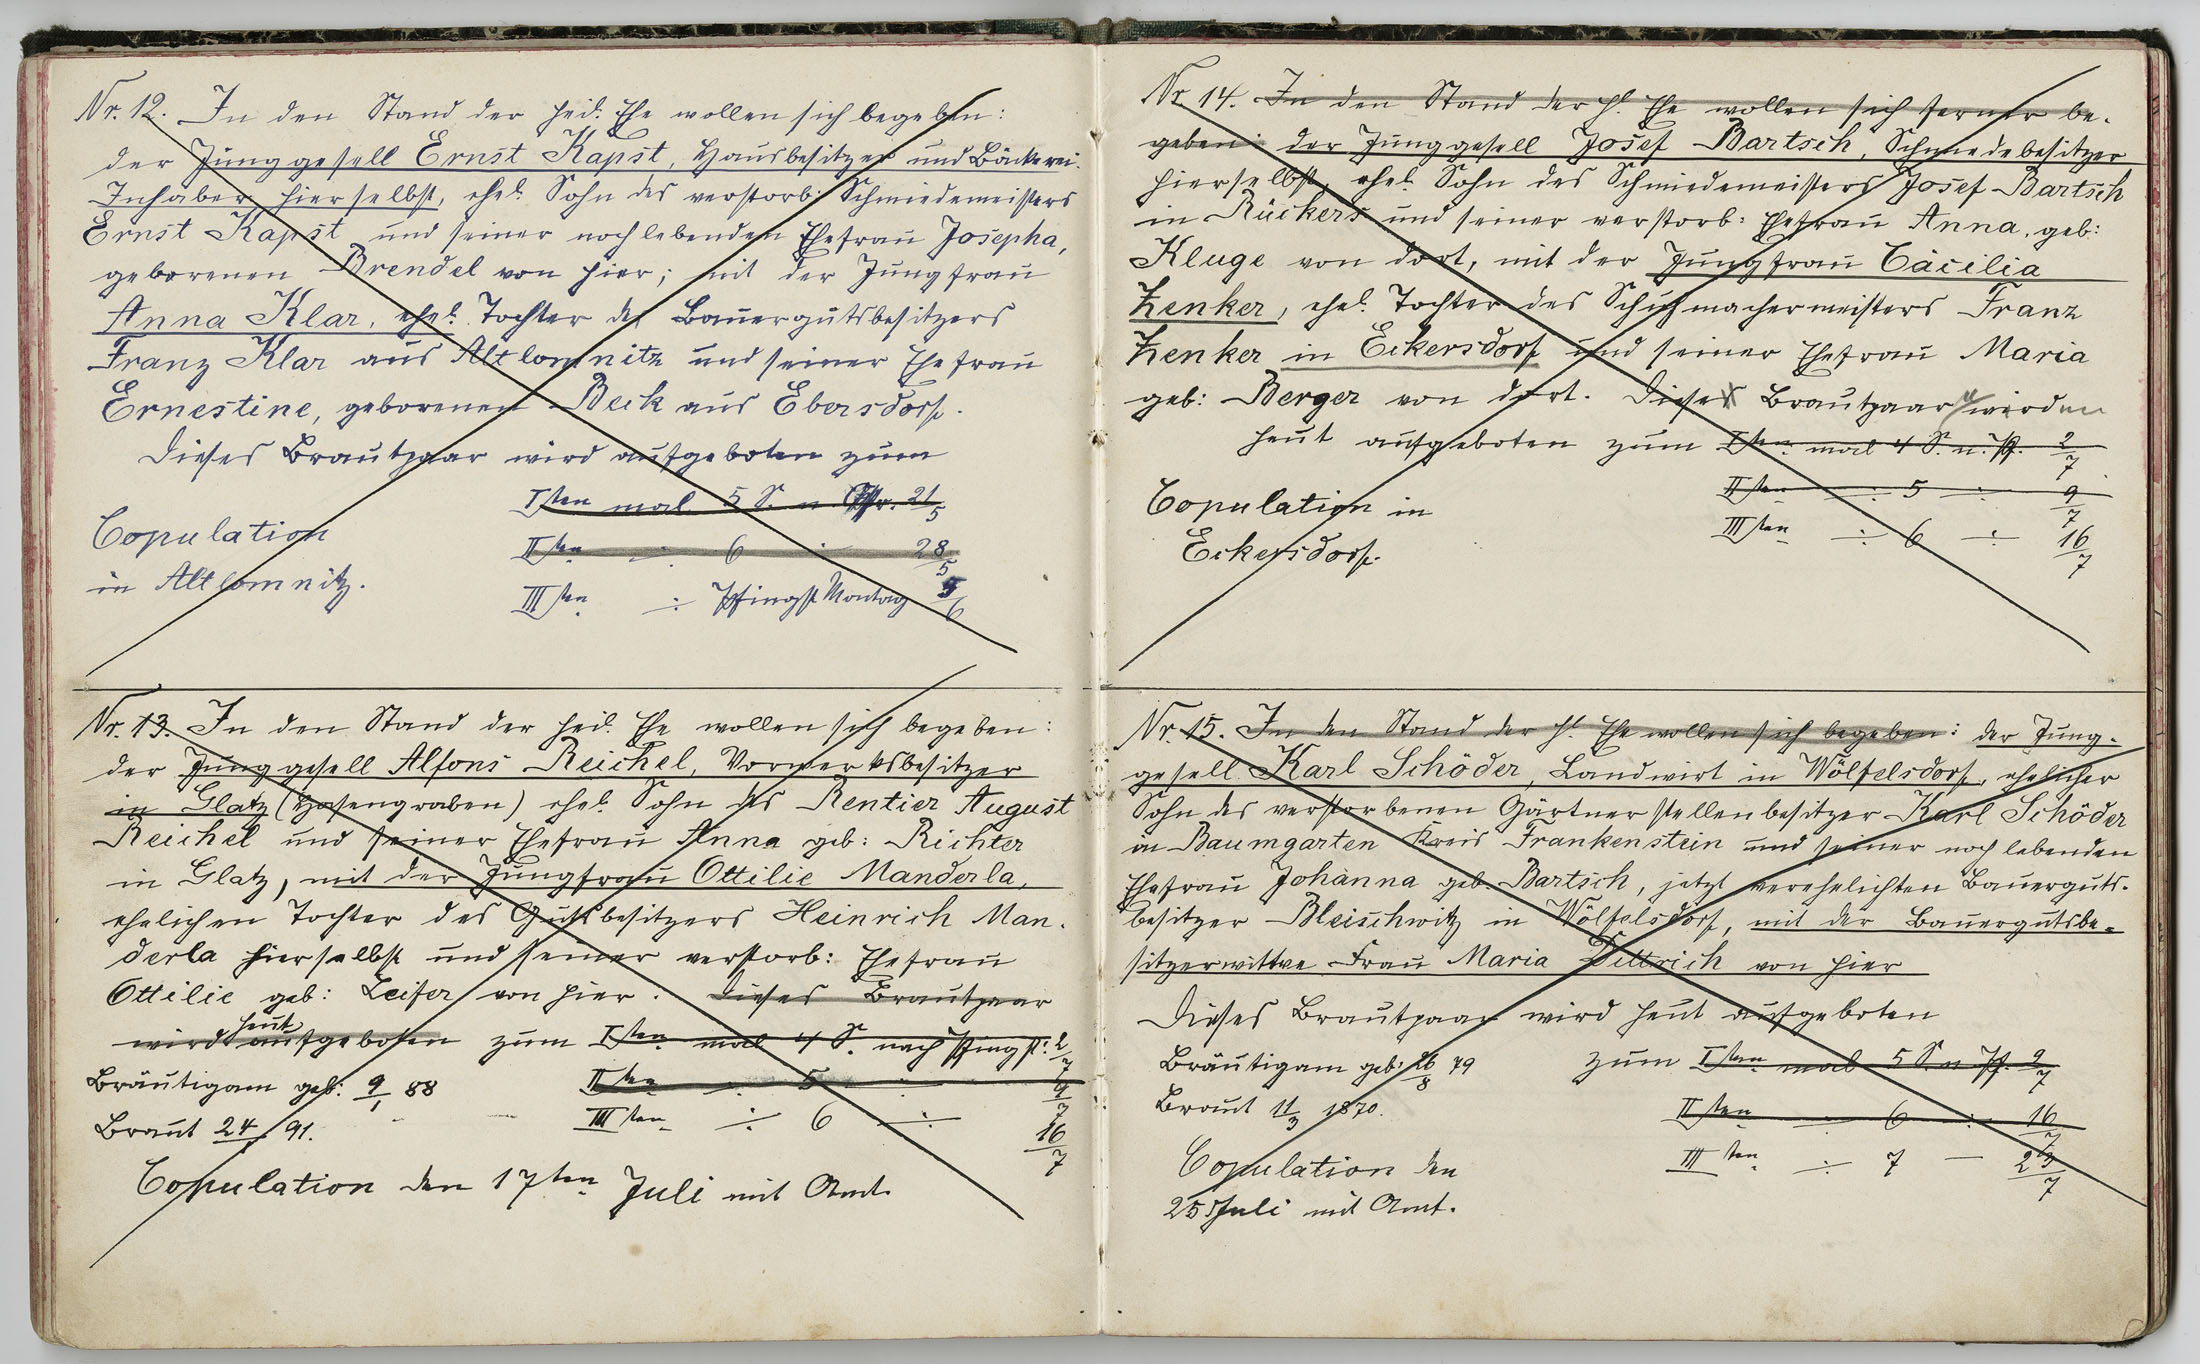 Nr. 12. In den Stand der heil. Ehe wollen sich begeben:
der Junggesell Ernst Kapst, Hausbesitzer und Bäckerei-
Inhaber hierselbst, ehel. Sohn des verstorb: Schmiedemeisters
Ernst Kapst und seiner noch lebenden Ehefrau Josepha,
geborenen Brendel von hier; mit der Jungfrau
Anna Klar, ehel. Tochter des Bauergutsbesitzers
Franz Klar aus Altlomnitz und seiner Ehefrau
Ernestine, geborenen Beck aus Ebersdorf.
Dieses Brautpaar wird aufgeboten zum
Iten mal 5 S. n. Ostr. 21/5
Copulation
in Altlomnitz.
IIten ÷ 6 ÷ 28/5
IIIten ÷ Pfingst Montag 5/6
Nr. 13. In den Stand der heil. Ehe wollen sich begeben:
der Junggesell Alfons Reichel, Vorwerksbesitzer
in Glatz (Hasengraben) ehel. Sohn des Rentier August
Reichel und seiner Ehefrau Anna geb: Richter
in Glatz, mit der Jungfrau Ottilie Manderla,
ehelichen Tochter des Gutsbesitzers Heinrich Man-
derla hierselbst und seiner verstorb: Ehefrau
Ottilie geb: Zeifer von hier. Dieses Brautpaar
wird heut aufgeboten zum Iten mal 4 S. nach Pfingst: 2/7
Bräutigam geb: 9/1 88 IIten ÷ 5 ÷ 9/7
Braut 24/1 91. IIIten ÷ 6 ÷ 16/7
Copulation den 17ten Juli mit Amt.
Nr. 14. In den Stand der hl. Ehe wollen sich ferner be-
geben: der Junggesell Josef Bartsch, Schmiedebesitzer
hierselbst, ehel. Sohn des Schmiedemeisters Josef Bartsch
in Rückers und seiner verstorb: Ehefrau Anna, geb:
Kluge von dort, mit der Jungfrau Cäcilia
Zenker, ehel. Tochter des Schuhmachermeisters Franz
Zenker in Eckersdorf und seiner Ehefrau Maria
geb: Berger von dort. Diese Brautpaare werden
heut aufgeboten zum Iten mal 4 S. n. Pf. 2/7
IIten ÷ 5 ÷ 9/7
Copulation in
Eckersdorf.
IIIten ÷ 6 ÷ 16/7
Nr. 15. In den Stand der hl. Ehe wollen sich begeben: der Jung-
gesell Karl Schöder, Landwirt in Wölfelsdorf, ehelicher
Sohn des verstorbenen Gärtnerstellenbesitzer Karl Schöder
in Baumgarten Kreis Frankenstein und seiner noch lebenden
Ehefrau Johanna geb. Bartsch, jetzt verehelichten Bauerguts-
besitzer Bleischwitz in Wölfelsdorf, mit der Bauergutsbe-
sitzerwittwe Frau Maria Dittrich von hier
Dieses Brautpaar wird heut aufgeboten
Bräutigam geb: 26/8 79 zum Iten mal 5 S. n. Pf. 9/7
Braut 11/3 1870. IIten ÷ 6 ÷ 16/7
IIIten ÷ 7 — 23/7
Copulation den
25 Juli mit Amt.